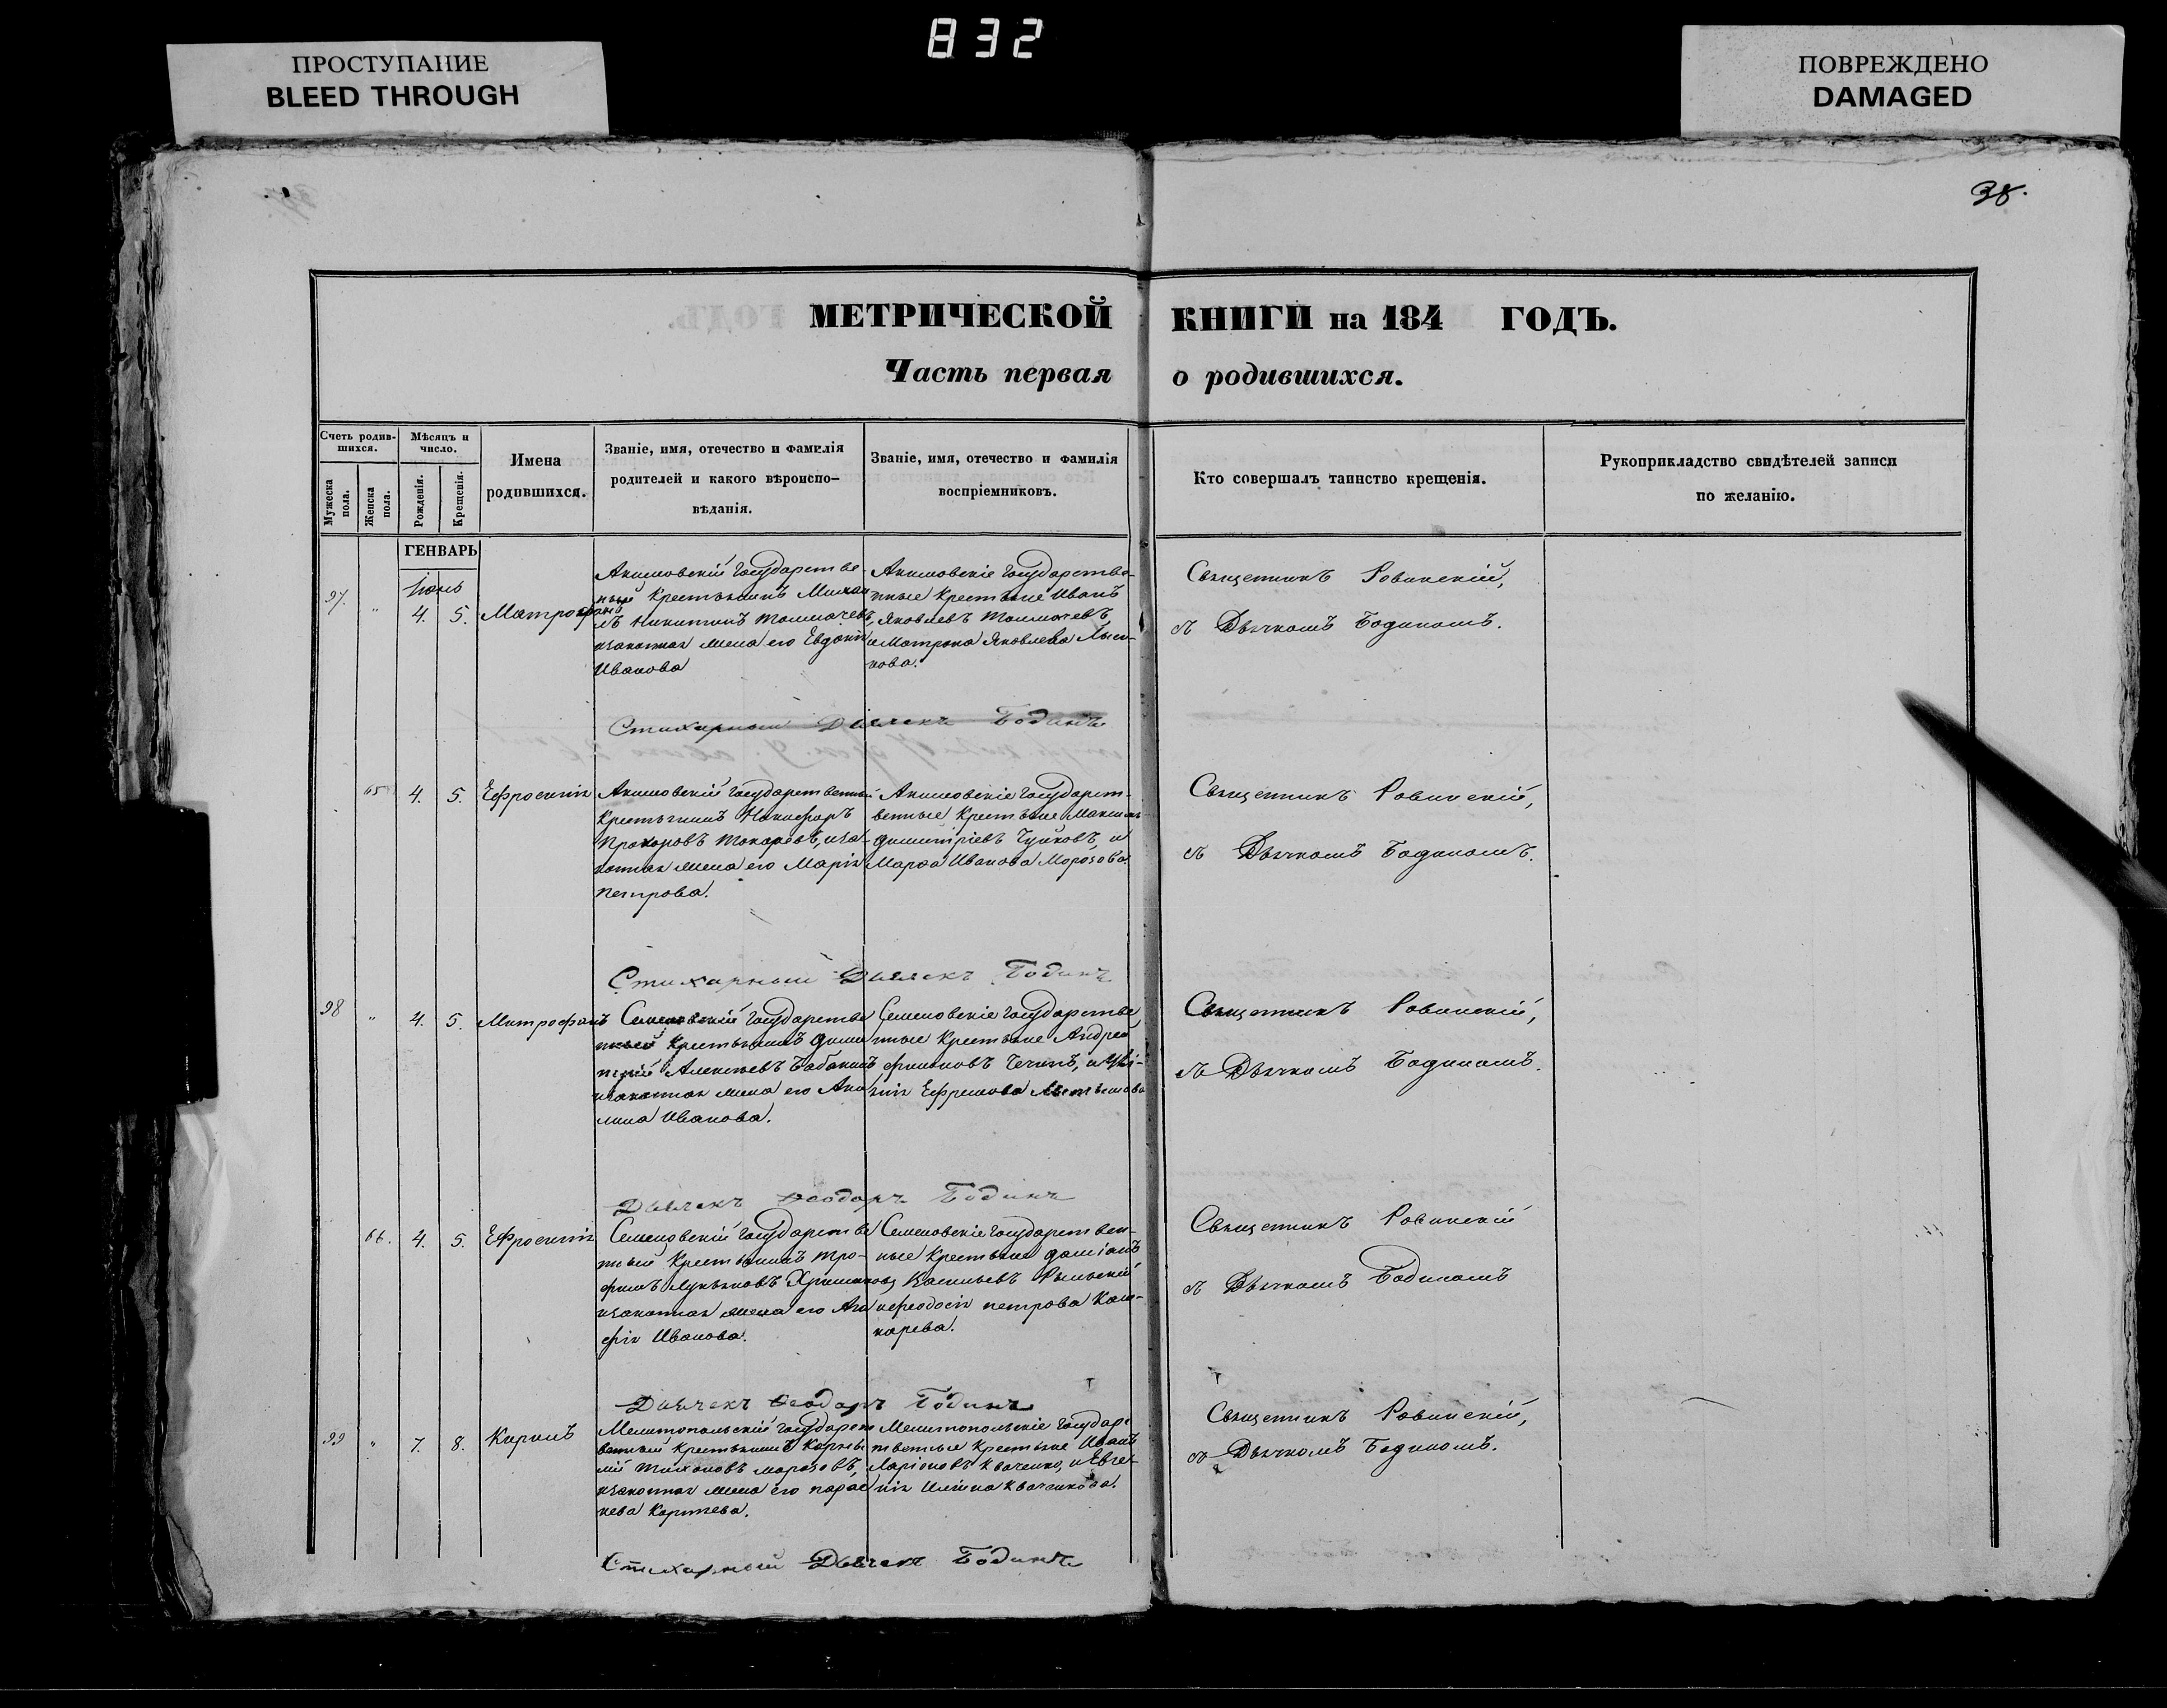 832
ПРОСТУПАНИЕ
BLEED THROUGH
ПОВРЕЖДЕНО
DAMAGED
38.
МЕТРИЧЕСКОЙ КНИГИ на 184 ГОДЪ.
Часть первая о родившихся.
Счетъ родив-
шихся.
Мужеска
пола.
Женска
пола.
Мѣсяцъ и
число.
Рожденія.
Крещенія.
Имена
родившихся.
Званіе, имя, отечество и фамилія
родителей и какого вѣроиспо-
вѣданія.
Званіе, имя, отечество и фамилія
воспріемниковъ.
Кто совершалъ таинство крещенія.
Рукоприкладство свидѣтелей записи
по желанію.
ГЕНВАРЬ
Іюнь
97. " 4. 5. Митрофанъ
Акимовскій Государстве-
нный Крестьянинъ Михаи
лъ Никитинъ Толмачевъ,
изаконная жена его Евдокія
Иванова
Акимовскіе Государстве-
нные Крестьяне Иванъ
Яковлевъ Толмачевъ,
и Матрона Яковлева Лысе-
нкова.
Священникъ Ровинскій,
съ Дьячкомъ Бодиномъ.
Стихарный Дьячекъ Бодинъ
65 4. 5. Ефросинія
Акимовскій Государственный
Крестьянинъ Никифоръ
Прохоровъ Токаревъ, иза-
конная жена его Марія
Петрова.
Акимовскіе Государст-
венные Крестьяне Максимъ
Димитріевъ Чуйковъ, и
Марѳа Иванова Морозова.
Священникъ Ровинскій,
съ Дьячкомъ Бодиномъ.
Стихарный Дьячекъ Бодинъ
98 " 4. 5. Митрофанъ
Семеновскій Государстве
нный Крестьянинъ Дими
трій Алексѣевъ Бабакинъ
изаконная жена его Аки
лина Иванова.
Семеновскіе Государстве
нные Крестьяне Андрей
Ефремова
Священникъ Ровинскій,
съ Дьячкомъ Бодиномъ.
Дьячекъ Ѳеодоръ Бодинъ
66. 4. 5. Ефросинія
Семеновскій Государстве
нный Крестьянинъ Тро-
фимъ Лукьяновъ
изаконная жена его Ага
фія Иванова.
Семеновскіе Государствен-
ные Крестьяне Даміанъ
Васильевъ Рыльскій
иѲеодосія Петрова Кош-
карева.
Священникъ Ровинскій
съ Дьячкомъ Бодиномъ
Дьячекъ Ѳеодоръ Бодинъ
99 " 7. 8. Кирилъ
Мелитопольскій Государст
венный Крестьянинъ Корни
лій Тихоновъ Морозовъ,
изаконная жена его Парас
кева Карпѣева.
Мелитопольскіе Государс
твенные Крестьяне Иванъ
Ларіоновъ Кваченко, и Евге-
нія Ильина Кваченкова.
Священникъ Ровинскій,
съ Дьячкомъ Бодиномъ.
Стихарный Дьячекъ Бодинъ